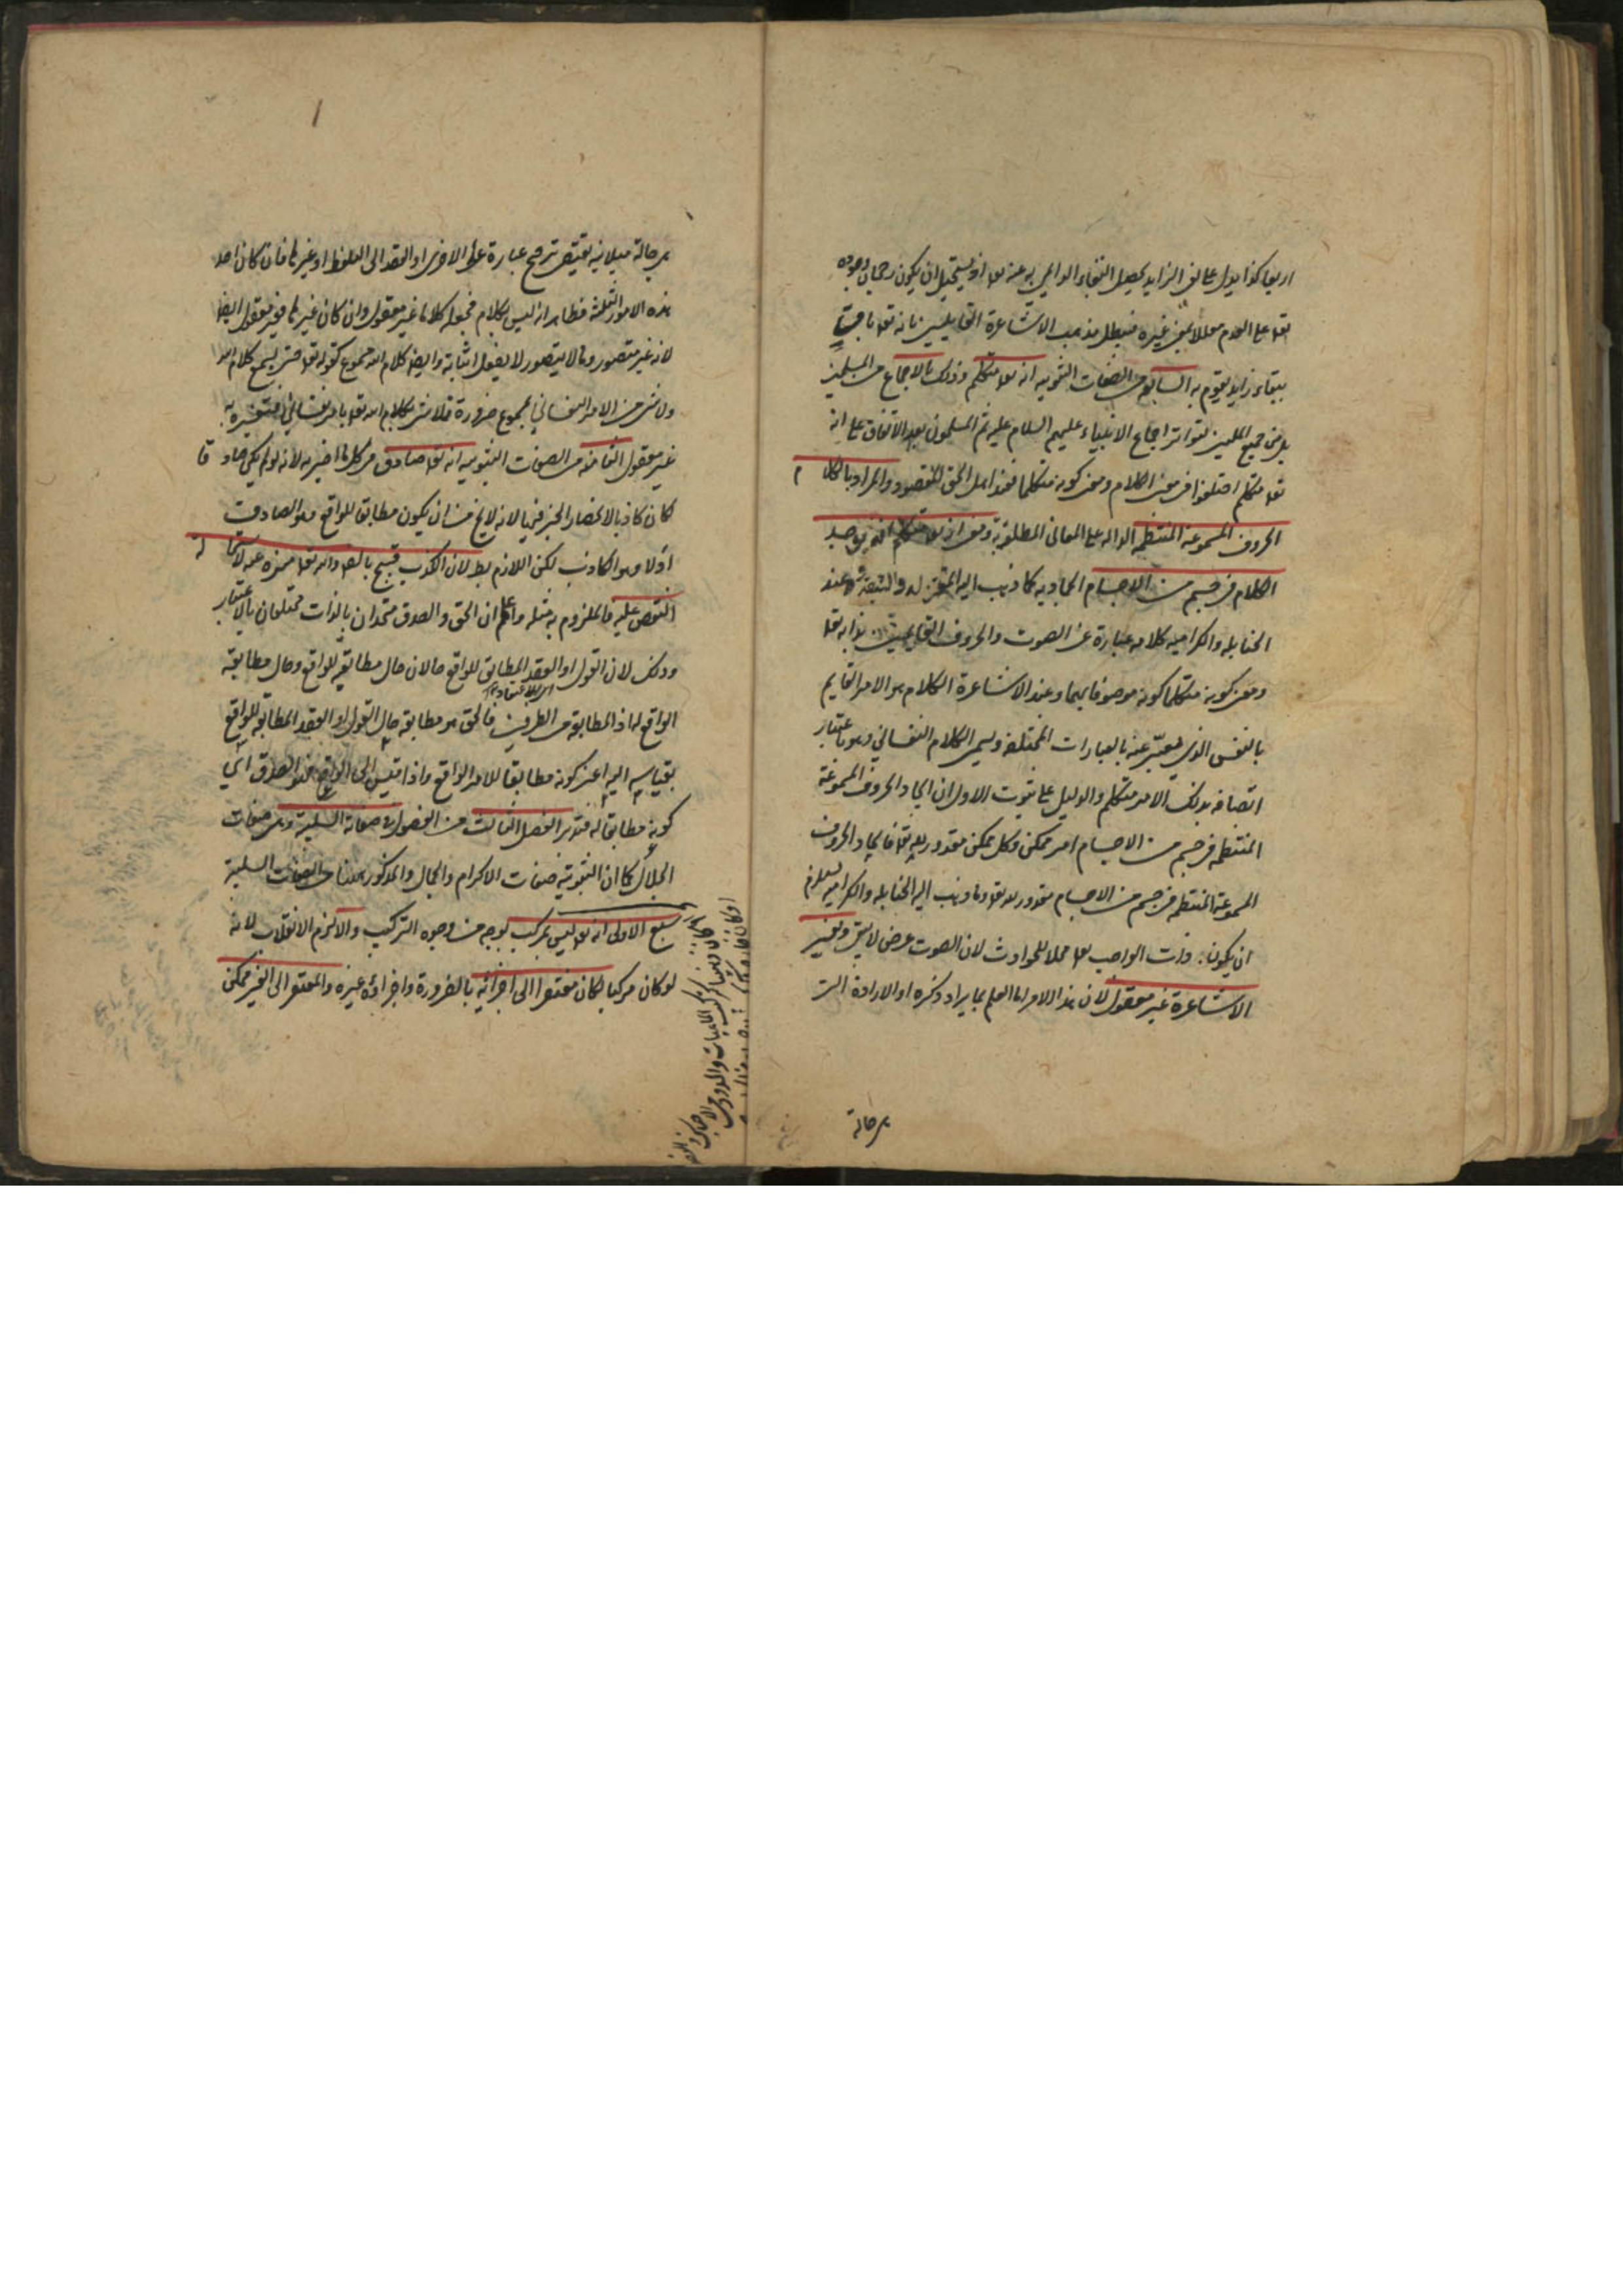 اربعا كذا يدل على نفى الزايد يحصل انتفاء الواجب به عنه تعا اذ يستحيل ان يكون رجحان وجوده
تعا على العدم معللا بمعنى غيره فيبطل مذهب الاشاعرة القايلين بانه تعا باق
ببقاء زايد يقوم به السابع من الصفات الثبوتية انه تعا متكلم وذلك بالاجماع من المسلمين
بل من جميع المليين لتواتر اجماع الانبياء عليهم السلام عليه ثم المسلمون بعد الاتفاق على انه
تعا متكلم اختلفوا فى معنى الكلام ومعنى كونه متكلما فعند اهل الحق المقصود والمراد بالكلا م
الحروف المسموعة المنتظمة الدالة على المعانى المطلوبة ومعنى انه تعا متكلم انه يوجد
الكلام فى جسم من الاجسام الجمادية كما ذهب اليه المعتزلة والشيعة وعند
الحنابلة والكرامية كلامه عبارة عن الصوت والحروف القايمين بذاته تعا
ومعنى كونه متكلما كونه موصوفا بهما وعند الاشاعرة الكلام هو الامر القايم
بالنفس الذى يعبر عنه بالعبارات المختلفة ويسمى الكلام النفسانى وهو باعتبار
اتصافه بذلك الامر متكلم والدليل على ثبوت الاول ان ايجاد الحروف المسموعة
المنتظمة فى جسم من الاجسام امر ممكن وكل ممكن مقدور لله تعا فايجاد الحروف
المسموعة المنتظمة فى جسم من الاجسام مقدور له تعا وما ذهب اليه الحنابلة والكرامية يستلزم
ان يكون ذات الواجب تعا محلا للحوادث لان الصوت عرض لا يبقى وتفسير
الاشاعرة غير معقول لان هذا الامر اما العلم بما يراد ذكره او الارادة التى
هى حالة
هى حالة ميلانية تقتضى ترجيح عبارة على الاخرى او القصد الى التلفظ او غيرها فان كان احد
هذه الامور الثلثة فظاهر انه ليس بكلام فجعله كلاما غير معقول وان كان غيرها فغير معقول ايضا
لانه غير متصور وما لا يتصور لا يعقل اثباته وايضا كلام الله مسموع كقوله تعا حتى يسمع كلام الله
ولا شى من الامر النفسانى بمسموع ضرورة فلا شى من كلام الله تعا بامر نفسانى فتفسيره به
غير معقول الثامنة من الصفات الثبوتية انه تعا صادق فى كل ما اخبر به لانه لو لم يكن صاد قا
كان كاذبا لانحصار الخبر فيهما لانه لا يخ من ان يكون مطابقا للواقع وهو الصادق
اولا وهو الكاذب لكن اللازم بط لان الكذب قبيح بالضرورة والله تعا منزه عنه لاستحا لة
النقص عليه فالملزوم به مثله واعلم ان الحق والصدق متحدان بالذات مختلفان بالاعتبار
وذلك لان القول او العقد المطابق للواقع حالان حال مطابقته للواقع وحال مطابقة
الواقع لها اذ المطابقة من الطرفين فالحق هو مطابقة حال القول او العقد المطابق للواقع
بقياسه اليه اعنى كونه مطابقا للامر الواقع واذا قيس الى الواقع فهو الصدق اى
كونه مطابقا له فتدبر الفصل الثالث من الفصول فى صفاته السلبية وهى صفات
الجلال كما ان الثبوتية صفات الاكرام والجمال والمذكور هنا من الصفات السلبية
سبع الاولى انه تعا ليس بمركب بوجه من وجوه التركيب والا لزم الانقلاب لانه
لو كان مركبا لكان مفتقرا الى اجزائه بالضرورة واجزاؤه غيره والمفتقر الى الغير ممكن